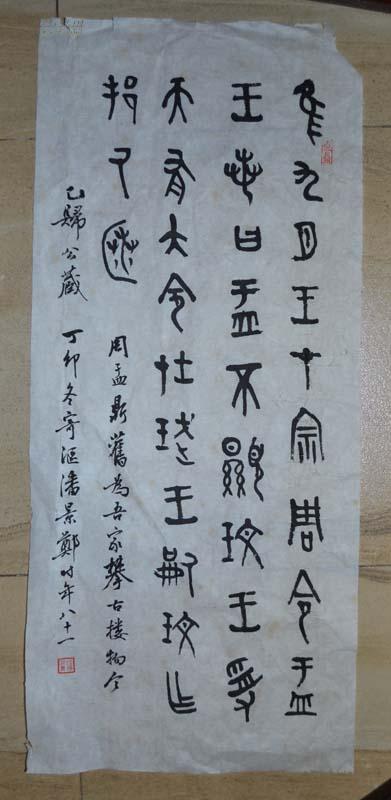 隹九月王才宗周令盂
王若曰盂不顯玟王受
天有大令在珷王嗣玟乍
邦匿
周盂鼎舊為吾家攀古楼物今
已歸公藏 丁卯冬寄漚潘景鄭時年八十一